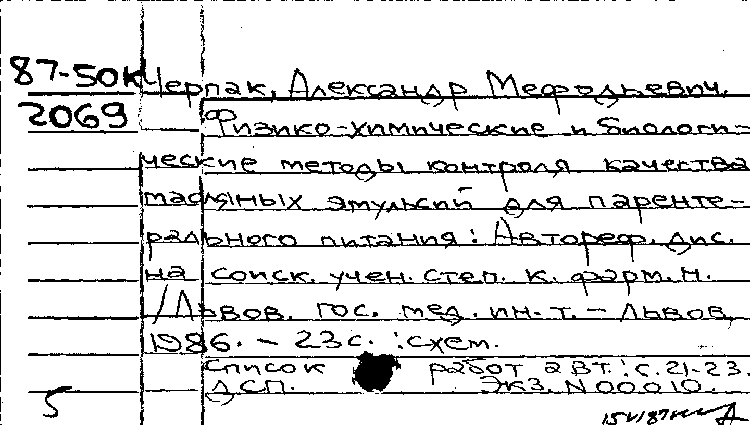 87-50К Черпак, Александр Мефодьевич.
2069 Физико-химические и биологи-
ческие методы контроля качества
масляных эмульсий для паренте-
рального питания: Автореф. дис.
на соиск. учен. степ. к. фарм. н.
/Львов. гос. мед. ин-т. - Львов,
1986. - 23 с. : схем.
Список работ авт.: с. 21-23.
ДСП. Экз. N 00010.
5